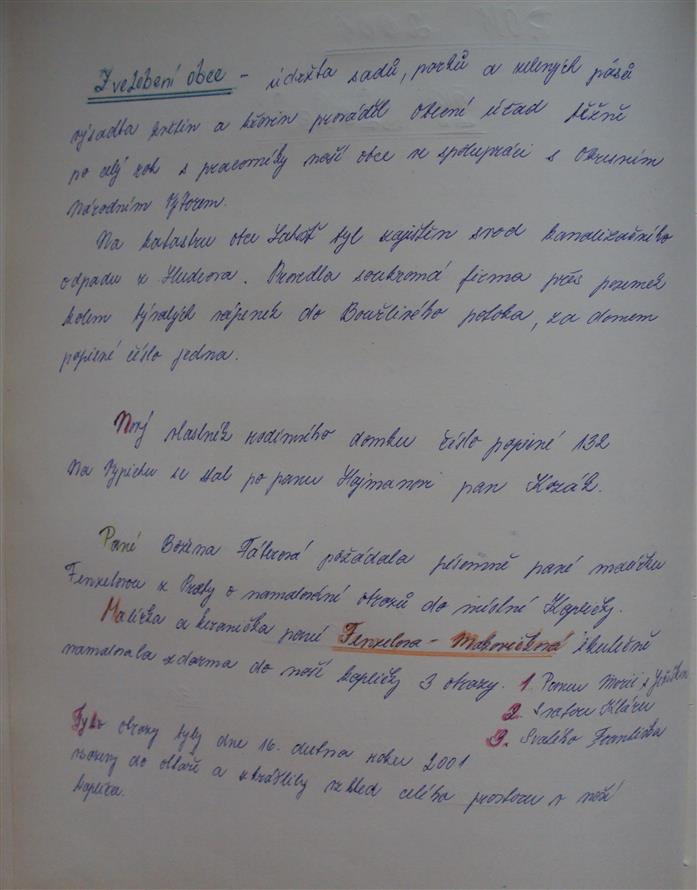 Zvelebení obce - údržba sadů, parků a zelených pásů
výsadba květin a křovin prováděl Obecní úřad běžně
po celý rok s pracovníky naší obce ve spolupráci s Okrasním
Národním Výborem.
Na katastru obce Labuť byl zajištěn svod kanalizačního
odpadu z Hudcova. Provedla soukromá firma přes pozemek
kolem bývalých vápenek do Bouřlivého potoka, za domem
popisné číslo jedna.
Nový vlastník rodinného domku číslo popisné 132
Na Vypichu se stal po panu Hajmanovi pan Kozák.
Paní Božena Fáberová požádala písemně paní malířku
Fenzelovou z Prahy o namalování obrazů do místní Kapličky.
Malířka a keramička paní Fenzelova - Makovičková skutečně
namalovala zdarma do naší kapličky 3 obrazy. 1. Pannu Marii s Ježíškem
2. Svatou Kláru
3. Svatého Františka
Tyto obrazy byly dne 16. dubna roku 2001
do oltáře a zkrášlily vzhled celého prostoru v naší
kapličce.